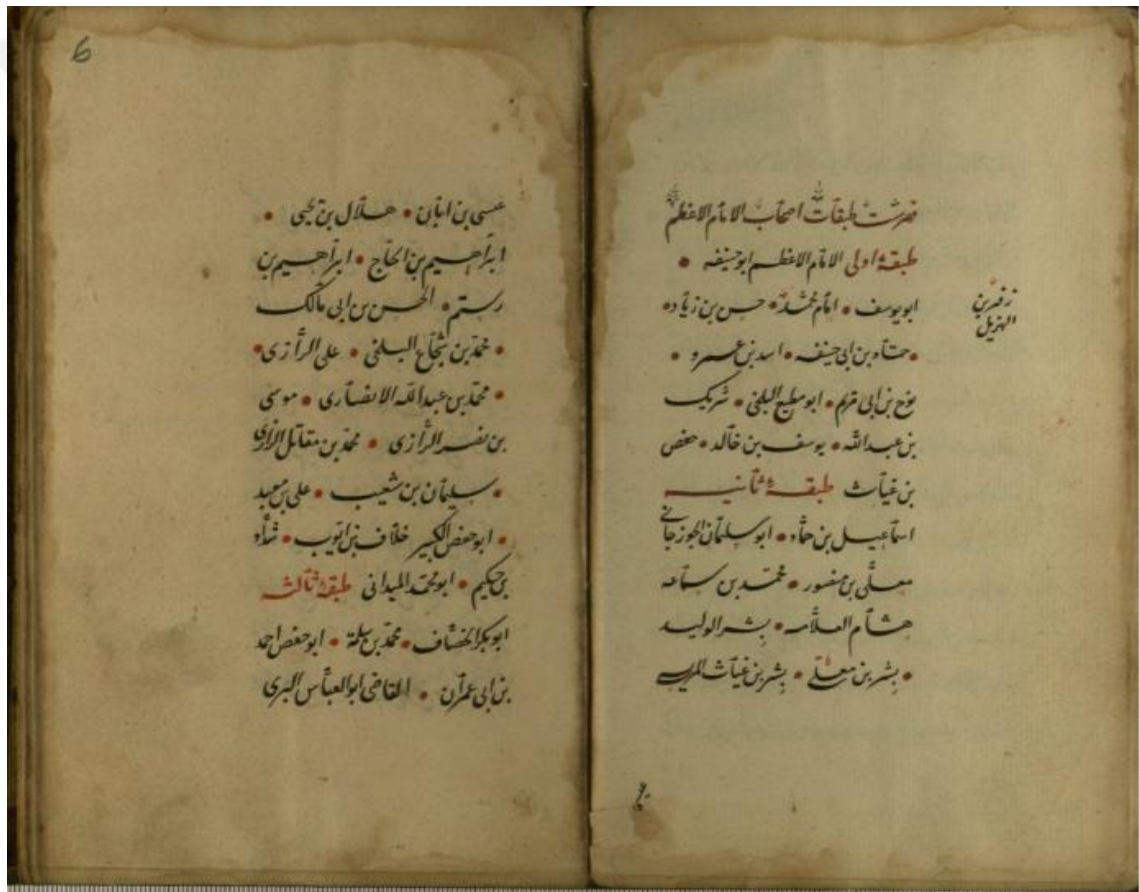 فهرست طبقات اصحاب الامام الاعظم
طبقۀ اولى الامام الاعظم ابو حنيفه
ابو يوسف امام محمد حسن بن زياده
زفر بن
الهزيل
حماد بن ابى حنيفه اسد بن عمرو
نوح بن ابى مريم ابو مطيع البلخى شريك
بن عبد الله يوسف بن خالد حفص
بن غياث طبقۀ ثانيه
اسماعيل بن حماد ابو سليمان الجوزجانى
معلى بن منصور محمد بن سماعه
هشام العلامه بشر الوليد
بشر بن معلى بشر بن غياث المريسى
6
عسى بن ابان هلال بن يحيى
ابراهيم بن الحاج ابراهيم بن
رستم الحسن بن ابى مالك
محمد بن شجاع البلخى على الرازى
محمد بن عبد الله الانصارى موسى
بن نصر الرازى محمد بن مقاتل الرازى
سليمان بن شعيب على بن معبد
ابو حفص الكبير خلاف بن ايوب شداد
بن حكيم ابو محمد الميدانى طبقۀ ثالثه
ابو بكر الخصاف محمد بن سلمة ابو حفص احمد
بن ابى عمران القاضى ابو العباس البرى